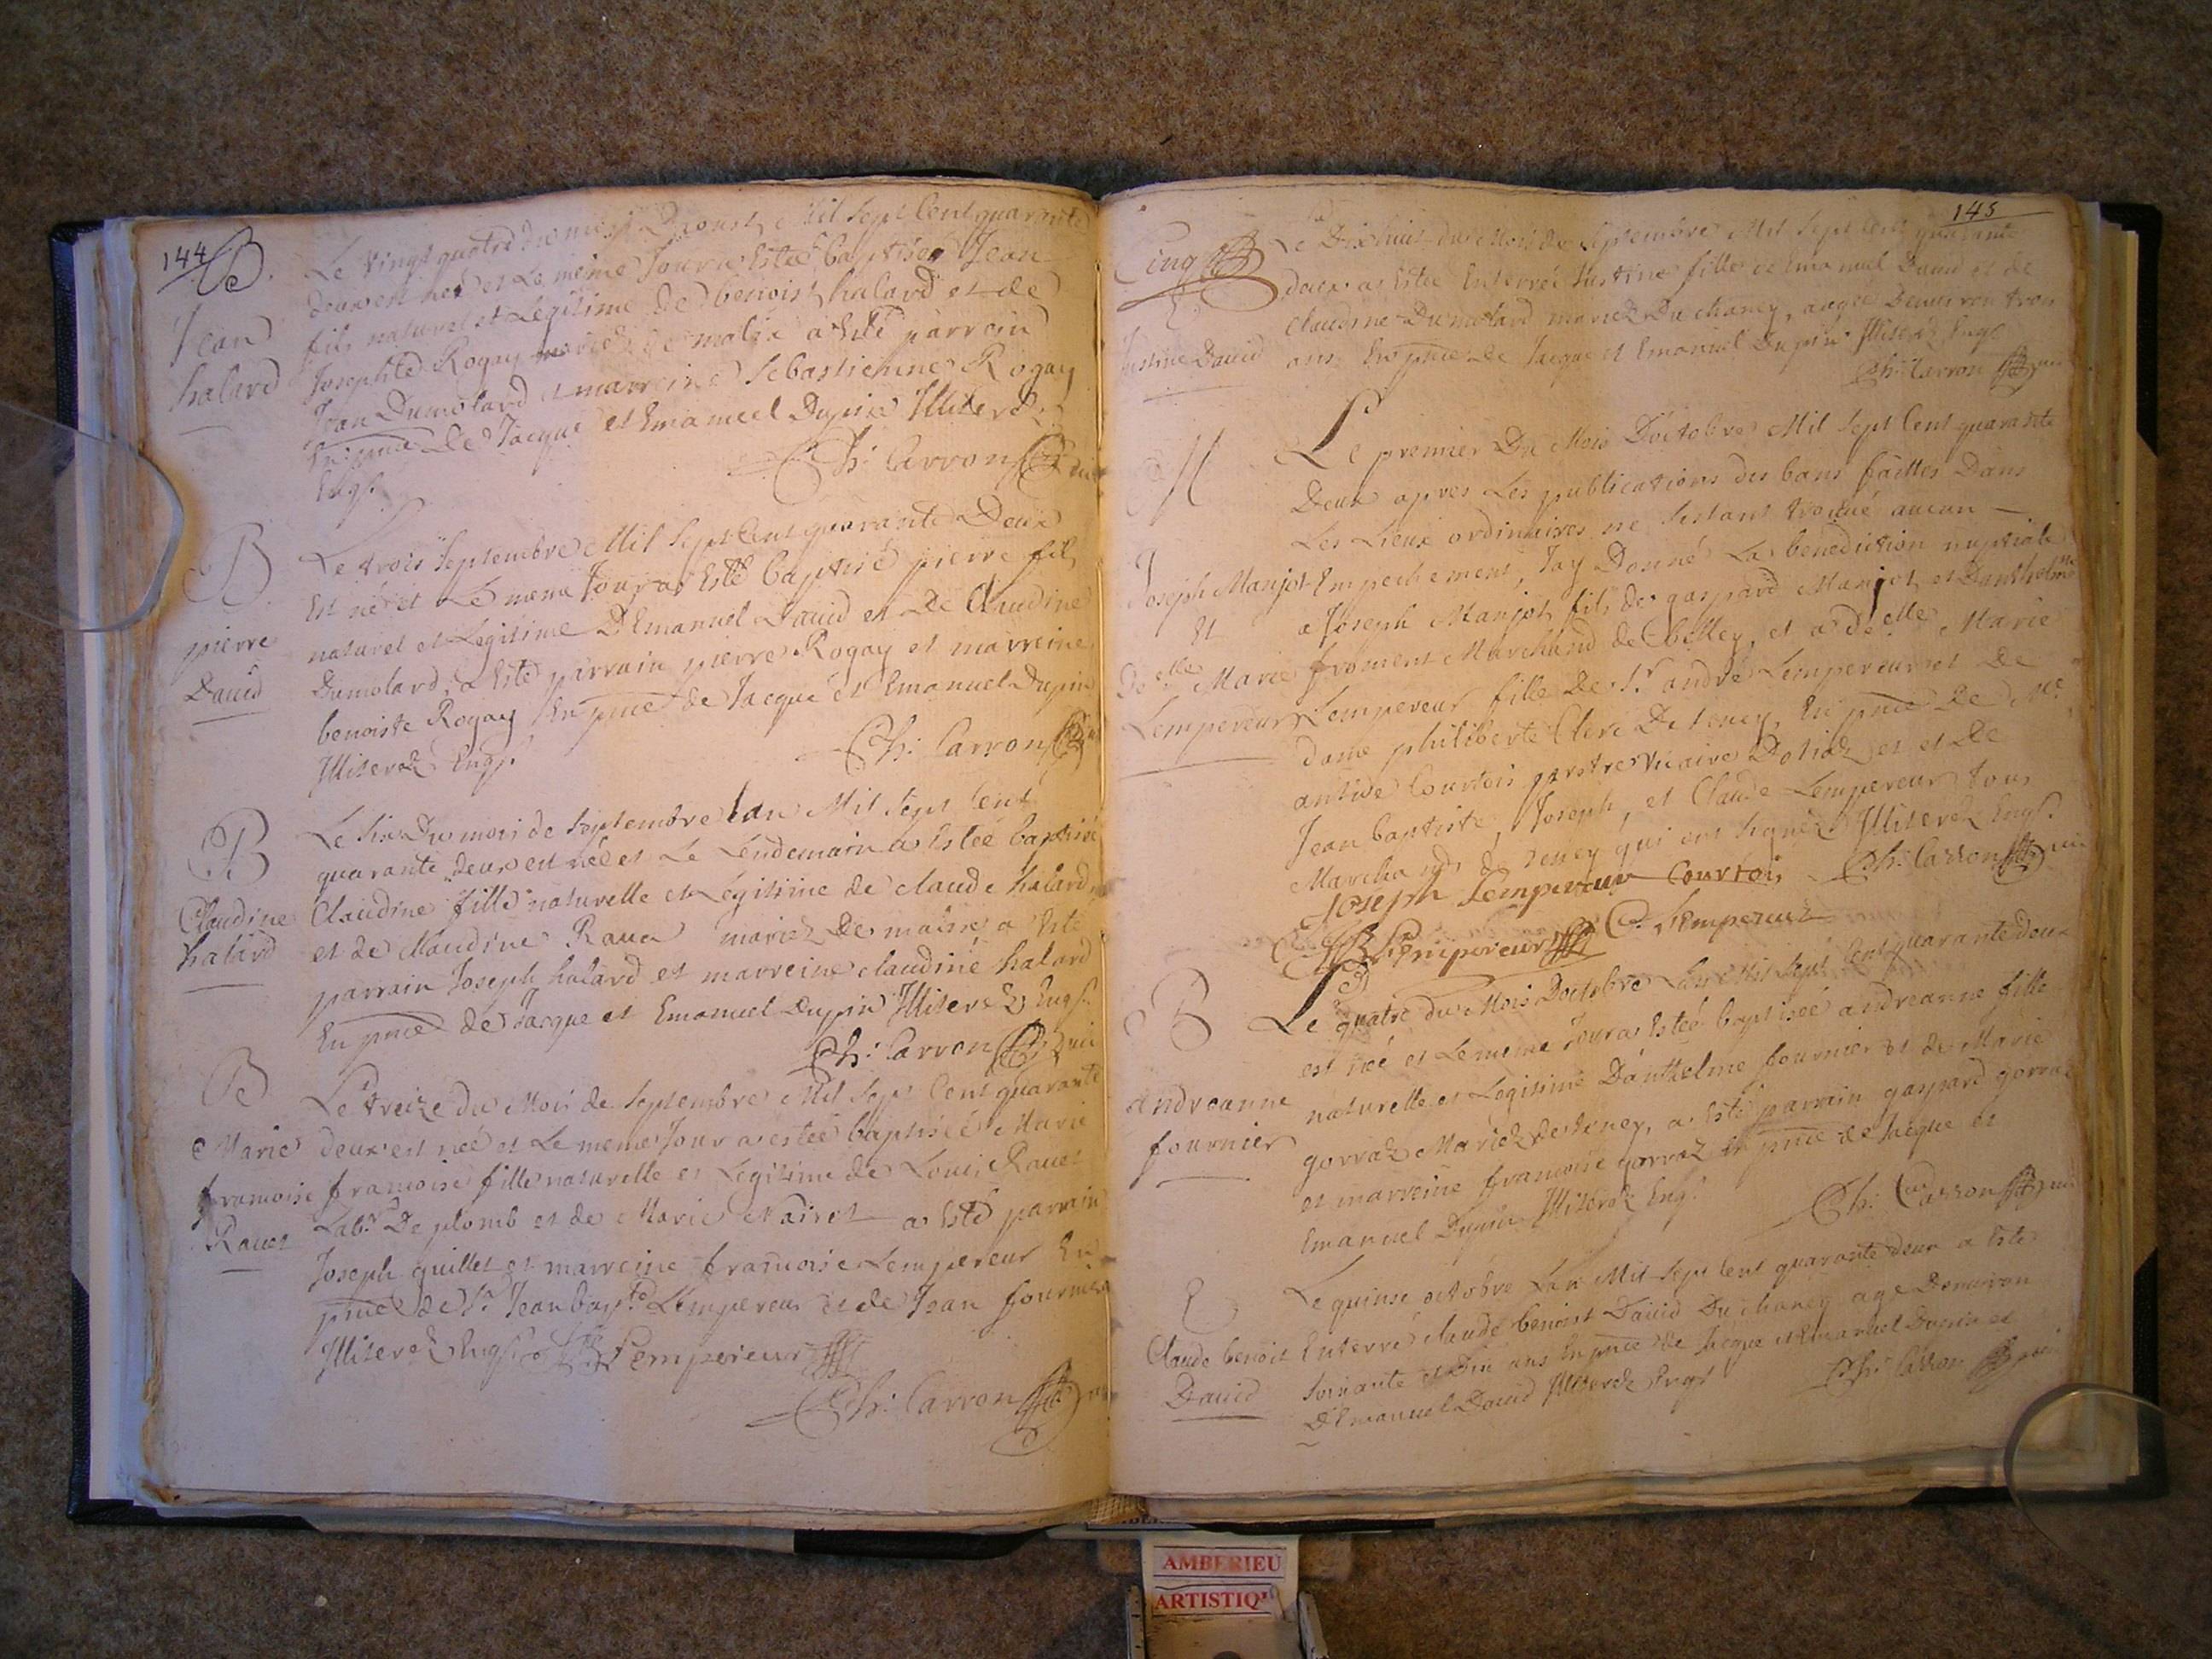 144
B.
Jean
halard
Le vingt quatre du mois Daoust Mil sept Cent quarante
deux est né et Le meme Jour a Esté baptisé Jean
fils naturel et Legitime de benoist halard et de
Josephte Rogay mariez de malix a Esté parrain
Jean Dumolard et marreine Sebastienne Rogay
En pnce de Jacque et Emanuel Dupin Illiterez
Enqs.
Ch: Carron
B
pierre
David
Le trois Septembre Mil Sept Cent quarante Deux
Est né et Le meme Jour a Esté baptisé pierre fils
naturel et Legitime D'Emanuel David et De Claudine
Dumolard, a Esté parrain pierre Rogay et marreine
benoiste Rogay En pnce de Jacque et Emanuel Dupin
Illiterez Enqs.
Ch: Carron
B
Claudine
halard
Le six Du mois de Septembre Lan Mil Sept Cent
quarante deux est née et Le Lendemain a Estée baptisée
Claudine fille naturelle et Legitime de Claude halard
et de Claudine mariez De malix a Esté
parrain Joseph halard et marreine Claudine halard
En pnce de Jacque et Emanuel Dupin Illiterez Enqs.
Ch: Carron
B
Marie
francoise
Ravet
Le treize du Mois de Septembre Mil Sept Cent quarante
deux est née et Le meme Jour a estée baptisée Marie
francoise fille naturelle et Legitime de Louis Ravet
Labr. De plomb et de Marie a Esté parrain
Joseph guillet et marreine francoise Lempereur En
pnce de Sr. Jean bapte. Lempereur et de Jean fournier
Illiterez Enqs. Lempereur
Ch: Carron
145
Cinq
Justine David
Le Dixhuit du Mois de Septembre Mil Sept Cent quarante
deux a Estée Enterrée Justine fille de Emanuel David et de
Claudine Dumolard mariez Du Chaney, agée Denviron trois
ans En pnce De Jacque et Emanuel Dupin Illiterez Enqs.
Ch: Carron
M
Joseph Manjot
Et
Delle Marie
Lempereur
Le premier Du Mois D'octobre Mil Sept Cent quarante
Deux apres Les publications des bans faittes Dans
Les Lieux ordinaires ne sestant trouvé aucun
Empechement, Jay Donné La benediction nuptiale
a Joseph Manjot fils de gaspard Manjot et Danthelme
froment Marchand de belley, et a Delle Marie
Lempereur fille De Sr. andré Lempereur et De
dame philiberte Clerc De teney, En pnce De Mre
antide Courtois prestre Vicaire Dotiaz et et De
Jean baptiste, Joseph, et Claude Lempereur tous
Marchands de teney qui ont Signéz Illiterez Enqs.
Joseph Lempereur Courtois Ch: Carron
Lempereur C. Lempereur
B
andreanne
fournier
Le quatre du Mois Doctobre Lan Mil Sept Cent quarante deux
est née et Le meme Jour a Esteé baptisée andreanne fille
naturelle et Legitime Danthelme fournier et de Marie
gorraz Mariez de teney, a Esté parrain gaspard gorraz
et marreine francoise gorraz En pnce de Jacque et
Emanuel Dupin Illiterez Enqs.
Ch: Carron
E
Claude benoit
David
Le quinse octobre Lan Mil Sept Cent quarante deux a Esté
Enterré Claude benoist David Du Chaney agé Denviron
soixante et Dix ans En pnce de Jacque et Emanuel Dupin et
D'Emanuel David Illiterez Enqs.
Ch: Carron
AMBERIEU
ARTISTIQ